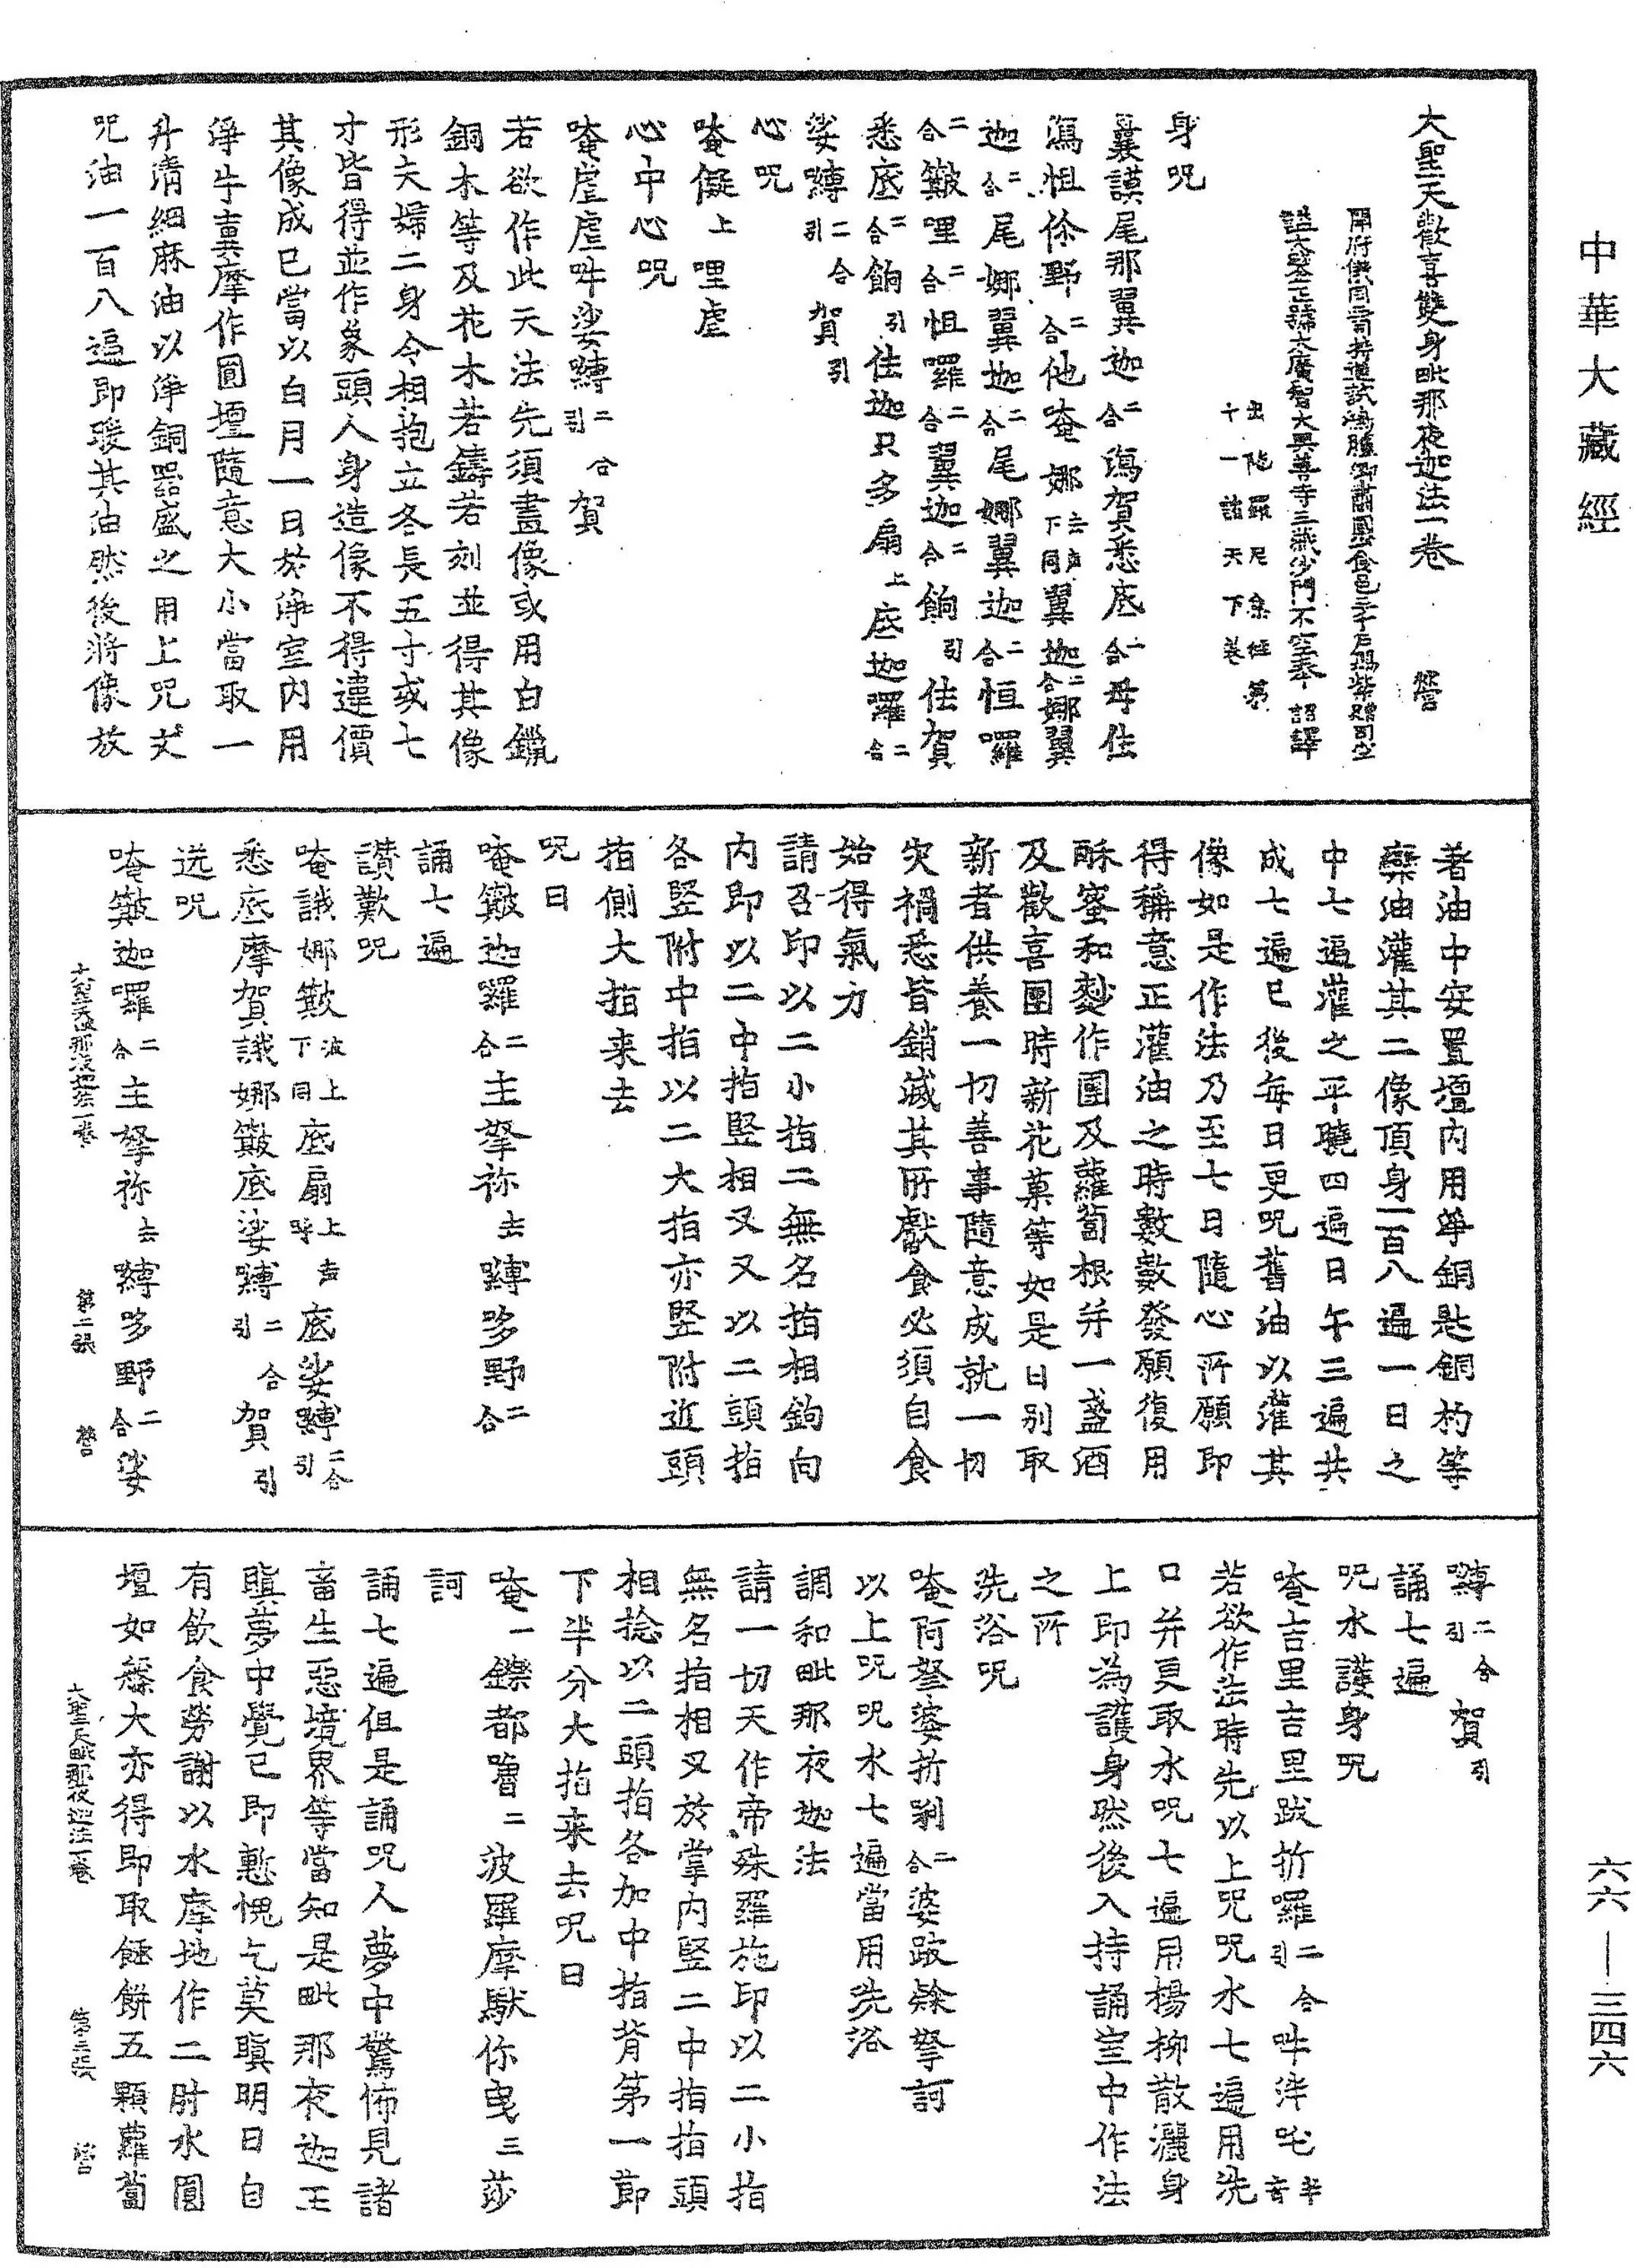 中華大藏經
大聖天歡喜雙身毗那夜迦法一卷　營
開府儀同三司特進試鴻臚卿肅國公食邑三千戶賜紫贈司空
謚大鑒正號大廣智大興善寺三藏沙門不空奉　詔譯
出陁羅尼集經第
十一諸天下卷
身呪
曩謨尾那翼迦二合瀉賀悉底二合母住
瀉怛你野二合他唵娜去聲下同翼迦二合娜翼
迦二合尾娜翼迦二合尾娜翼迦二合怛囉
二合簸哩二合怛囉二合翼迦二合餉引住賀
悉底二合餉引住迦只多扇上底迦羅二合
娑嚩二合引賀引
心呪
唵儗上哩虐
心中心呪
唵虐虐吽娑嚩二合引賀
若欲作此天法先須畫像或用白鑞
銅木等及花木若鑄若刻並得其像
形夫婦二身令相抱立各長五寸或七
寸皆得並作象頭人身造像不得違價
其像成已當以白月一日於淨室內用
淨牛糞摩作圓壇隨意大小當取一
升清細麻油以淨銅器盛之用上呪文
呪油一百八遍即暖其油然後將像放
著油中安置壇內用淨銅匙銅杓等
㪺油灌其二像頂身一百八遍一日之
中七遍灌之平曉四遍日午三遍共
成七遍已後每日更呪舊油以灌其
像如是作法乃至七日隨心所願即
得稱意正灌油之時數數發願復用
酥蜜和麨作團及蘿蔔根并一盞酒
及歡喜團時新花菓等如是日別取
新者供養一切善事隨意成就一切
灾禍悉皆銷滅其所獻食必須自食
始得氣力
請召印以二小指二無名指相鉤向
內即以二中指竪相叉又以二頭指
各竪附中指以二大指亦竪附近頭
指側大指来去
呪曰
唵簸迦囉二合主拏祢去嚩哆野二合
誦七遍
讚歎呪
唵誐娜簸波上下同底扇上聲呼底娑嚩二合引
悉底摩賀誐娜簸底娑嚩二合引賀引
送呪
唵簸迦囉二合主拏祢去嚩哆野二合娑
大聖天毗那夜迦法一卷　第二張　營
嚩二合引賀引
誦七遍
呪水護身呪
唵吉里吉里跋折囉二合引吽泮吒半音
若欲作法時先以上呪呪水七遍用洗
口并更取水呪七遍用楊柳散灑身
上印為護身然後入持誦室中作法
之所
洗浴呪
唵阿密婆折唎二合婆跛除拏訶
以上呪呪水七遍當用洗浴
調和毗那夜迦法
請一切天作帝殊羅施印以二小指
無名指相叉於掌內竪二中指指頭
相捻以二頭指各加中指背第一節
下半分大指来去呪曰
唵一鑠都嚕二波羅摩馱你曳三莎
訶
誦七遍但是誦呪人夢中驚怖見諸
畜生惡境界等當知是毗那夜迦王
瞋夢中覺已即慙愧乞莫瞋明日自
有飲食勞謝以水摩地作二肘水圓
壇如槃大亦得即取䭔餅五顆蘿蔔
大聖天毗那夜迦法一卷　第三張　營
六六—三四六